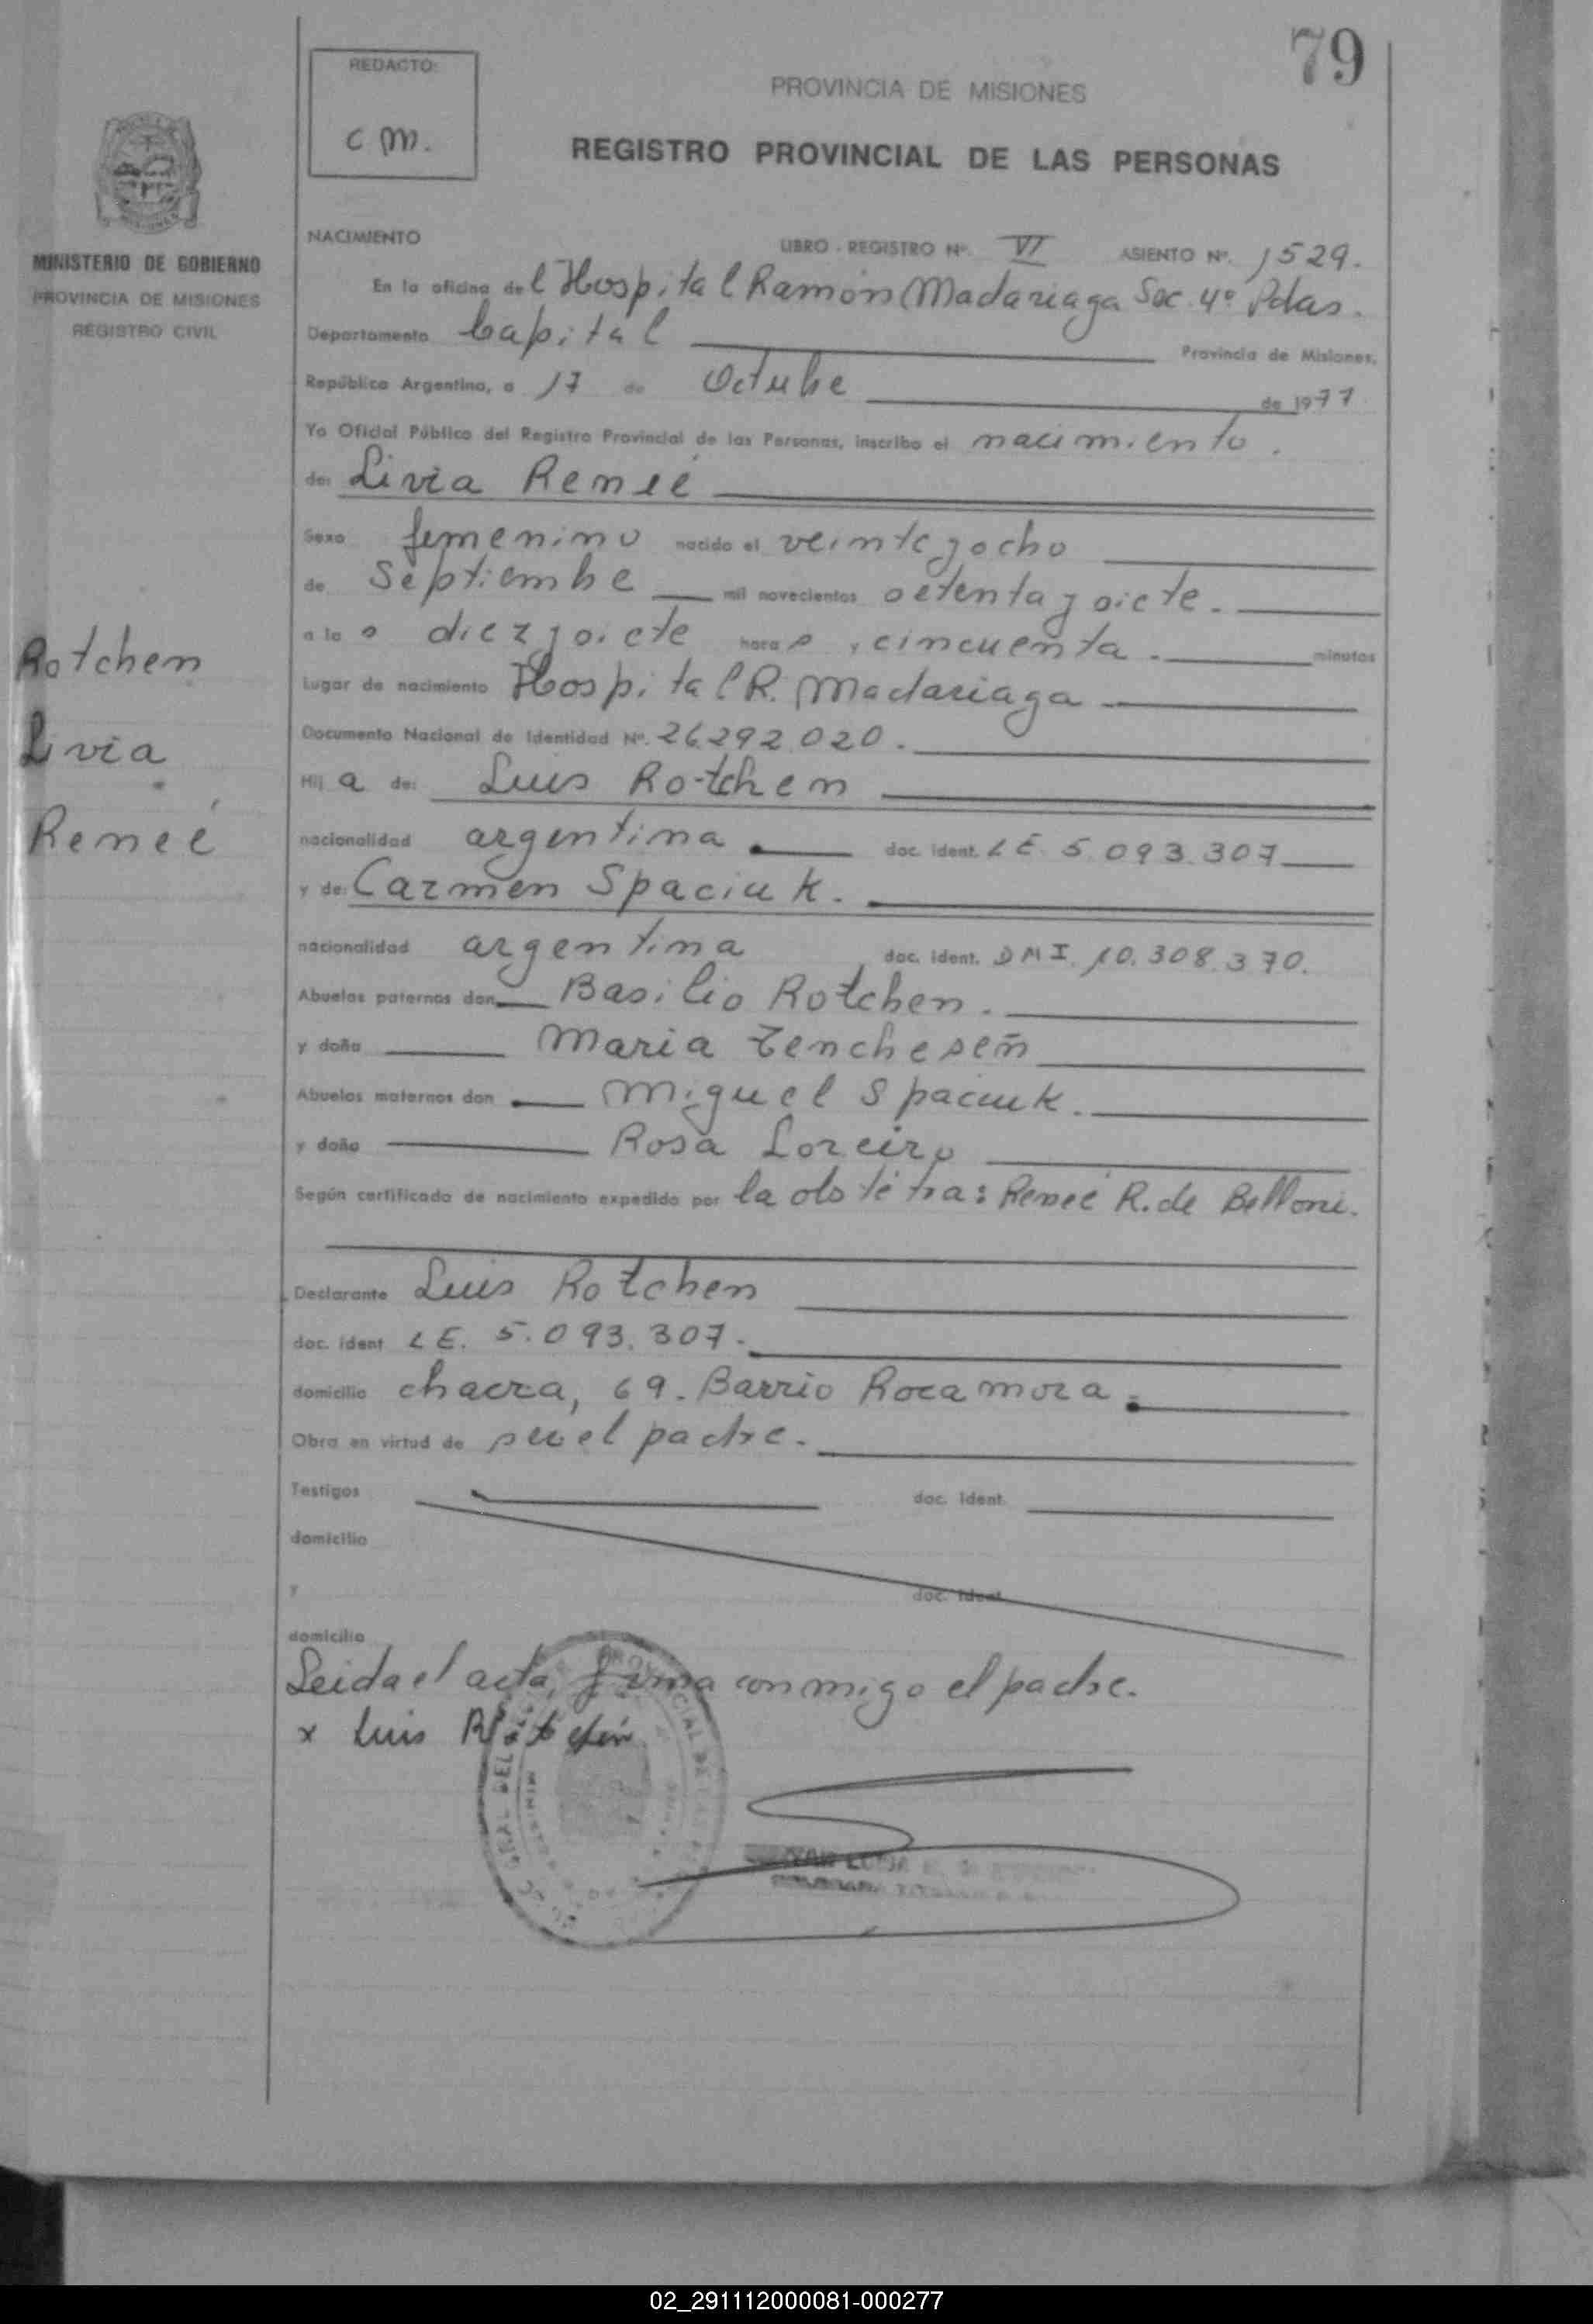 79
REDACTO:
c m.
PROVINCIA DE MISIONES
REGISTRO PROVINCIAL DE LAS PERSONAS
MINISTERIO DE GOBIERNO
PROVINCIA DE MISIONES
REGISTRO CIVIL
NACIMIENTO LIBRO - REGISTRO Nº. VI ASIENTO Nº. 1529.
En la oficina del Hospital Ramón Madariaga Sec. 4º Pdas.
Departamento Capital Provincia de Misiones,
República Argentina, a 17 de Octubre de 1977
Yo Oficial Público del Registro Provincial de las Personas, inscribo el nacimiento.
de: Livia Reneé
Sexo femenino nacido el veinteyocho
de Septiembre mil novecientos setentaysiete.
a las diezysiete horas y cincuenta. minutos
Lugar de nacimiento Hospital R. Madariaga
Documento Nacional de Identidad Nº. 26.292.020.
Hija de: Luis Rotchen
nacionalidad argentina doc. ident. LE. 5.093.307
y de: Carmen Spaciuk.
nacionalidad argentina doc. ident. DNI. 10.308.370.
Abuelos paternos don Basilio Rotchen.
y doña Maria
Abuelos maternos don Miguel Spaciuk.
y doña Rosa Loreiro
Según certificado de nacimiento expedido por la obstétra: Reneé R. de Belloni.
Declarante Luis Rotchen
doc. ident LE. 5.093.307.
domicilio chacra, 69. Barrio Rocamora.
Obra en virtud de ser el padre.
Testigos doc. ident.
domicilio
y doc. ident.
domicilio
Leida el acta, firma conmigo el padre.
x Luis Rotchen
Rotchen
Livia
Reneé
02_291112000081-000277